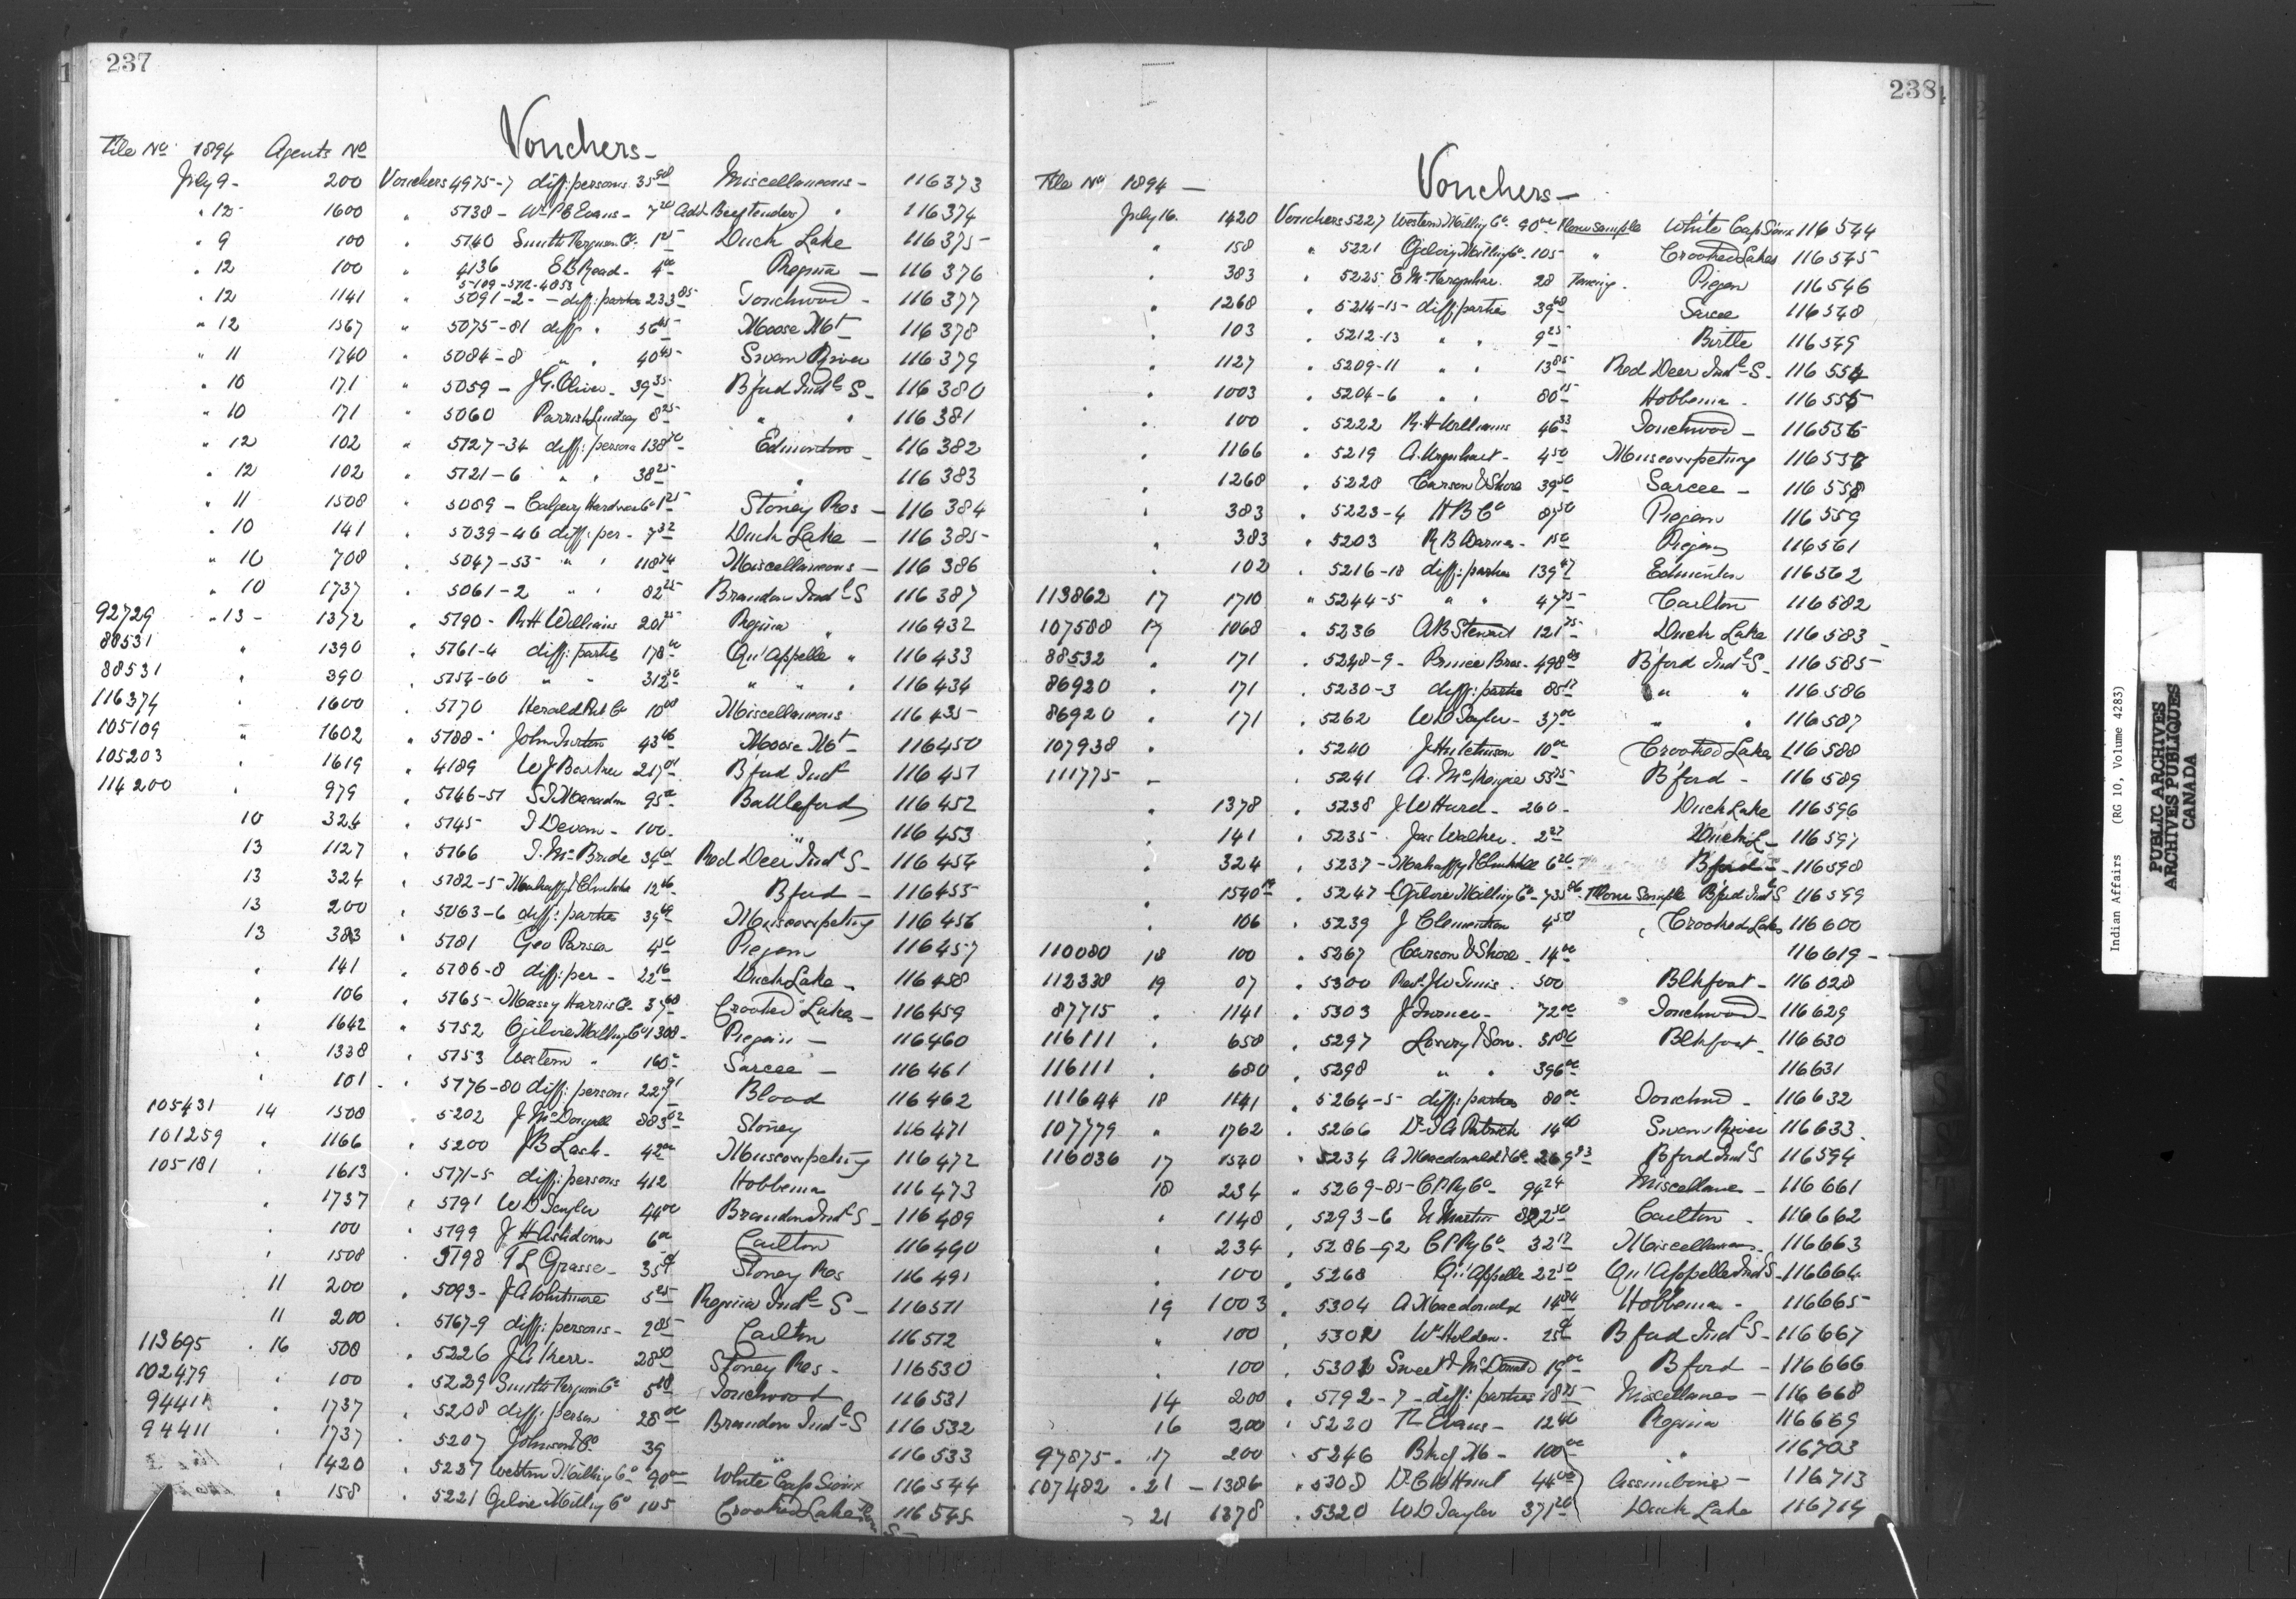 237
Vouchers -
File No 1894 Agents No
July 9 - 200 Vouchers 4975-7 diff: persons 35 90 Miscellaneous - 116373
" 12 - 1600 " 5138 - Wm P B Evans - 7 20 (Adv. Beef tenders) " 116374
" 9 100 " 5140 Smith Ferguson Co. 1 25 Duck Lake 116375
" 12 100 " 4136 E B Read - 4 00 Regina - 116376
5109-5712-4053
" 12 1141 " 5091-2 - diff: parties 233 85 Touchwood - 116377
" 12 1567 " 5075-81 diff " 56 65 Moose Mt 116378
" 11 1740 " 5084-8 " " 40 45 Swan River 116379
" 10 171 " 5059 - J G. Oliver - 39 35 B'ford Indl S - 116380
" 10 171 " 5060 Parrish Lindsay 8 25 " " 116381
" 12 102 " 5127-34 diff: persons 138 70 Edmonton - 116382
" 12 102 " 5121-6 " " 38 25 " 116383
" 11 1508 " 5089 - Calgary Hardware Co 1 25 Stoney Res - 116384
" 10 141 " 5039-46 diff: per - 7 32 Duck Lake - 116385
" 10 708 " 5047-55 " " 118 74 Miscellaneous - 116386
" 10 1737 " 5061-2 " " 82 25 Brandon Indl S 116387
92729 " 13 - 1372 " 5190 - R H Williams 201 25 Regina 116432
88531 " 1390 " 5161-4 diff: parties 178 00 Qu'Appelle " 116433
88531 " 390 " 5154-60 " " 312 50 " " " 116434
116374 " 1600 " 5170 Herald Pub Co 10 00 Miscellaneous 116435
105109 " 1602 " 5188 - John Turton 43 16 Moose Mt - 116450
105203 1619 " 4189 W J Barker 217 01 B'ford Indl 116451
114200 " 979 " 5146-51 S J Macadam 95 Battleford 116452
10 324 " 5145 J Devan - 100 - " 116453
13 1127 " 5166 J. McBride 34 61 Red Deer Indl S - 116454
13 324 " 5182-5 Mahaffy & Clinkskill 12 16 B'ford - 116455
13 200 " 5063-6 diff: parties 39 69 Muscowpetung 116456
13 383 " 5181 Geo Parser 4 50 Piegan 116457
" 141 " 5186-8 diff: per - 22 16 Duck Lake - 116458
" 106 " 5165 - Massey Harris Co. 37 60 Crooked Lakes - 116459
" 1642 " 5152 Ogilvie Milling Co 1308 - Piegan - 116460
" 1338 " 5153 Western " 160 Sarcee - 116461
" 101 " 5176-80 diff: persons 227 91 Blood 116462
105431 14 1508 " 5202 J McDougall 883 52 Stoney 116471
101259 " 1166 " 5200 J B Lash - 42 00 Muscowpetung 116472
105181 " 1613 " 5171-5 diff: persons 412 Hobbema 116473
" 1737 " 5191 W D Taylor 44 00 Brandon Indl S - 116489
" 100 " 5199 J H Ashdown 6 Carlton 116490
" 1508 " 5198 F L Grasse - 35 Stoney Res 116491
11 200 " 5093 - J A Whitmore 5 25 Regina Indl S - 116511
11 200 " 5167-9 diff: persons - 2 85 Carlton 116512
113695 " 16 508 " 5226 J A Kerr - 28 50 Stoney Res - 116530
102479 " 100 " 5229 Smith Ferguson Co 5 Touchwood 116531
94411 " 1737 " 5208 diff: person 28 00 Brandon Indl S 116532
94411 " 1737 " 5207 Johnson & Co 39 " 116533
" 1420 " 5227 Western Milling Co 90 00 White Cap Sioux 116544
" 158 " 5221 Ogilvie Milling Co 105 Crooked Lakes 116545
238
Vouchers -
File No 1894 -
July 16. 1420 Vouchers 5227 Western Milling Co 90 00 Flour Sample White Cap Sioux 116544
" 158 " 5221 Ogilvie Milling Co. 105 " Crooked Lakes 116545
" 383 " 5225 E McFarquhar. 28 Fencing. Piegan 116546
" 1268 " 5214-15 diff: parties 39 60 Sarcee 116548
" 103 " 5212-13 " " 9 25 Birtle 116549
" 1127 " 5209-11 " " 13 85 Red Deer Indl S. 116554
" 1003 " 5204-6 " " 80 15 Hobbema - 116555
" 100 " 5222 R. H Williams 46 33 Touchwood - 116556
" 1166 " 5219 A. Urquhart - 4 50 Muscowpetung 116557
" 1268 " 5228 Carson & Shore 39 50 Sarcee - 116558
" 383 " 5223-4 H B Co 87 50 Piegan 116559
" 383 " 5203 R B Barnes - 15 Piegan 116561
" 102 " 5216-18 diff: parties 139 47 Edmonton 116562
113862 17 1710 " 5244-5 " " 47 75 Carlton 116582
107588 17 1068 " 5236 A B Stewart 121 75 Duck Lake 116583
88532 " 171 " 5248-9 - Prince Bros - 498 B'ford Indl S - 116585
86920 " 171 " 5230-3 diff: parties 85 17 " " 116586
86920 " 171 " 5262 W D Taylor - 37 00 " " 116587
107938 " " 5240 J Hutchinson 10 00 Crooked Lakes 116588
111775 - " 5241 A. McKenzie 55 75 B'ford - 116589
" 1378 " 5238 J W Hurd - 260 - Duck Lake 116596
" 141 " 5235 Jas Walker. 2 27 Duck L - 116597
" 324 " 5237 - Mahaffy & Clinkskill 6 26 B'ford - 116598
" 1540 " 5247 - Ogilvie Milling Co - 735 86 Flour Sample B'ford Indl S 116599
" 106 " 5239 J Clementson 4 50 Crooked Lakes 116600
110080 18 100 " 5267 Carson & Shore - 14 00 116619 -
112338 19 07 " 5300 Revd. J W Tims . 500 Blkfoot - 116628
87715 " 1141 " 5303 J Turner - 72 00 Touchwood - 116629
116111 " 658 " 5297 Lowry & Son. 518 Blkfoot - 116630
116111 " 680 " 5298 " " 396 00 116631
111644 18 1141 " 5264-5 diff: parties 80 00 Touchwd - 116632
107779 " 1762 " 5266 Dr J A Patrick 14 Swan River 116633.
116036 17 1540 " 5234 A Macdonald & Co. 269 83 B'ford Indl S 116594
18 234 " 5269-85 - C P Ry Co - 94 24 Miscellaneous - 116661
" 1148 " 5293-6 N Martin 822 50 Carlton - 116662
" 234 " 5286-92 C P Ry Co 32 17 Miscellaneous - 116663
" 100 " 5268 Qu'Appelle 22 50 Qu'Appelle Indl S - 116664
19 1003 " 5304 A Macdonald 14 84 Hobbema - 116665
" 100 " 5302 Wm Holden - 25 B'ford Indl S - 116667
" 100 " 5301 Sweet & McDonald 19 00 B'ford - 116666
14 200 " 5192-7 - diff: parties 18 75 Miscellaneous - 116668
16 200 " 5220 Evans - 12 40 Regina 116669
97875 - 17 200 " 5246 Bk of M - 100 00 " 116703
107482 " 21 - 1386 " 5308 Dr. C W Hunt 44 00 Assiniboine - 116713
" 21 1378 " 5320 W D Taylor 371 20 Duck Lake 116714
Indian Affairs (RG 10, Volume 4283)
PUBLIC ARCHIVES
ARCHIVES PUBLIQUES
CANADA